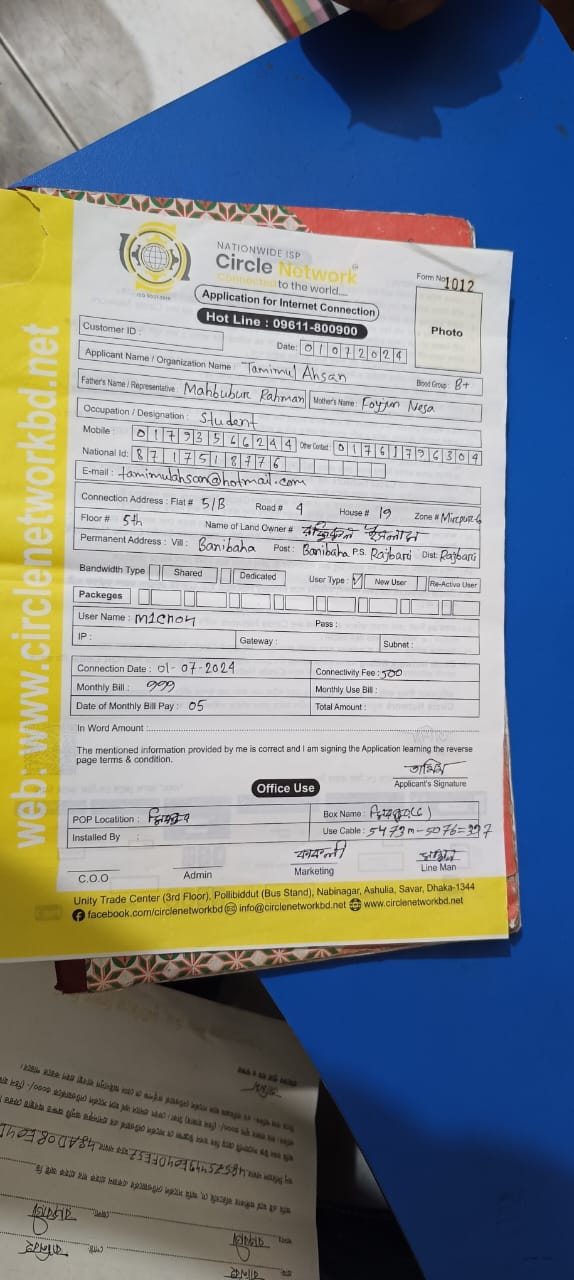 NATIONWIDE ISP
Circle Network
Connected to the world....
ISO 9001:2015
Form No 1012
Application for Internet Connection
Hot Line : 09611-800900
Photo
Customer ID :
Date: 01072024
Applicant Name / Organization Name : Tamimul Ahsan Blood Group: B+
Father's Name / Representative : Mahbubur Rahman Mother's Name : Foyjun Nesa
Occupation / Designation : Student
Mobile : 01793566244 Other Contact : 01761796304
National Id: 8717518776
E-mail : tamimulahsan@hotmail.com
Connection Address : Flat # 5/B Road # 4 House # 19 Zone # Mirpur-6
Floor # 5th Name of Land Owner # ইসলাম
Permanent Address : Vill : Banibaha Post : Banibaha P.S. Rajbari Dist: Rajbari
Bandwidth Type Shared Dedicated User Type : ✓ New User Re-Active User
Packeges
User Name : m1chon Pass :
IP : Gateway : Subnet :
Connection Date : 01-07-2024 Connectivity Fee : 500
Monthly Bill : 999 Monthly Use Bill :
Date of Monthly Bill Pay : 05 Total Amount :
In Word Amount :
The mentioned information provided by me is correct and I am signing the Application learning the reverse
page terms & condition.
Applicant's Signature
Office Use
POP Locatition : Box Name :
Installed By : Use Cable : 5473m-5076=397
C.O.O Admin Marketing Line Man
Unity Trade Center (3rd Floor), Pollibiddut (Bus Stand), Nabinagar, Ashulia, Savar, Dhaka-1344
facebook.com/circlenetworkbd info@circlenetworkbd.net www.circlenetworkbd.net
web: www.circlenetworkbd.net